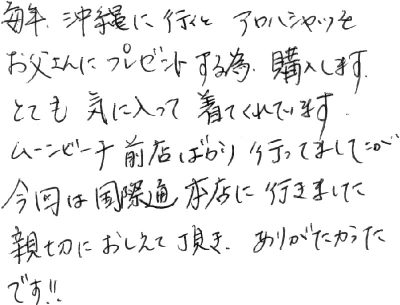 毎年、沖縄に行くと アロハシャツを
お父さんに プレゼント する為、購入します。
とても 気に入って 着てくれています。
ムーンビーチ前店ばかり 行ってましたが
今回は 国際通 本店に 行きました
親切に おしえて 頂き、ありがたかった
です!!